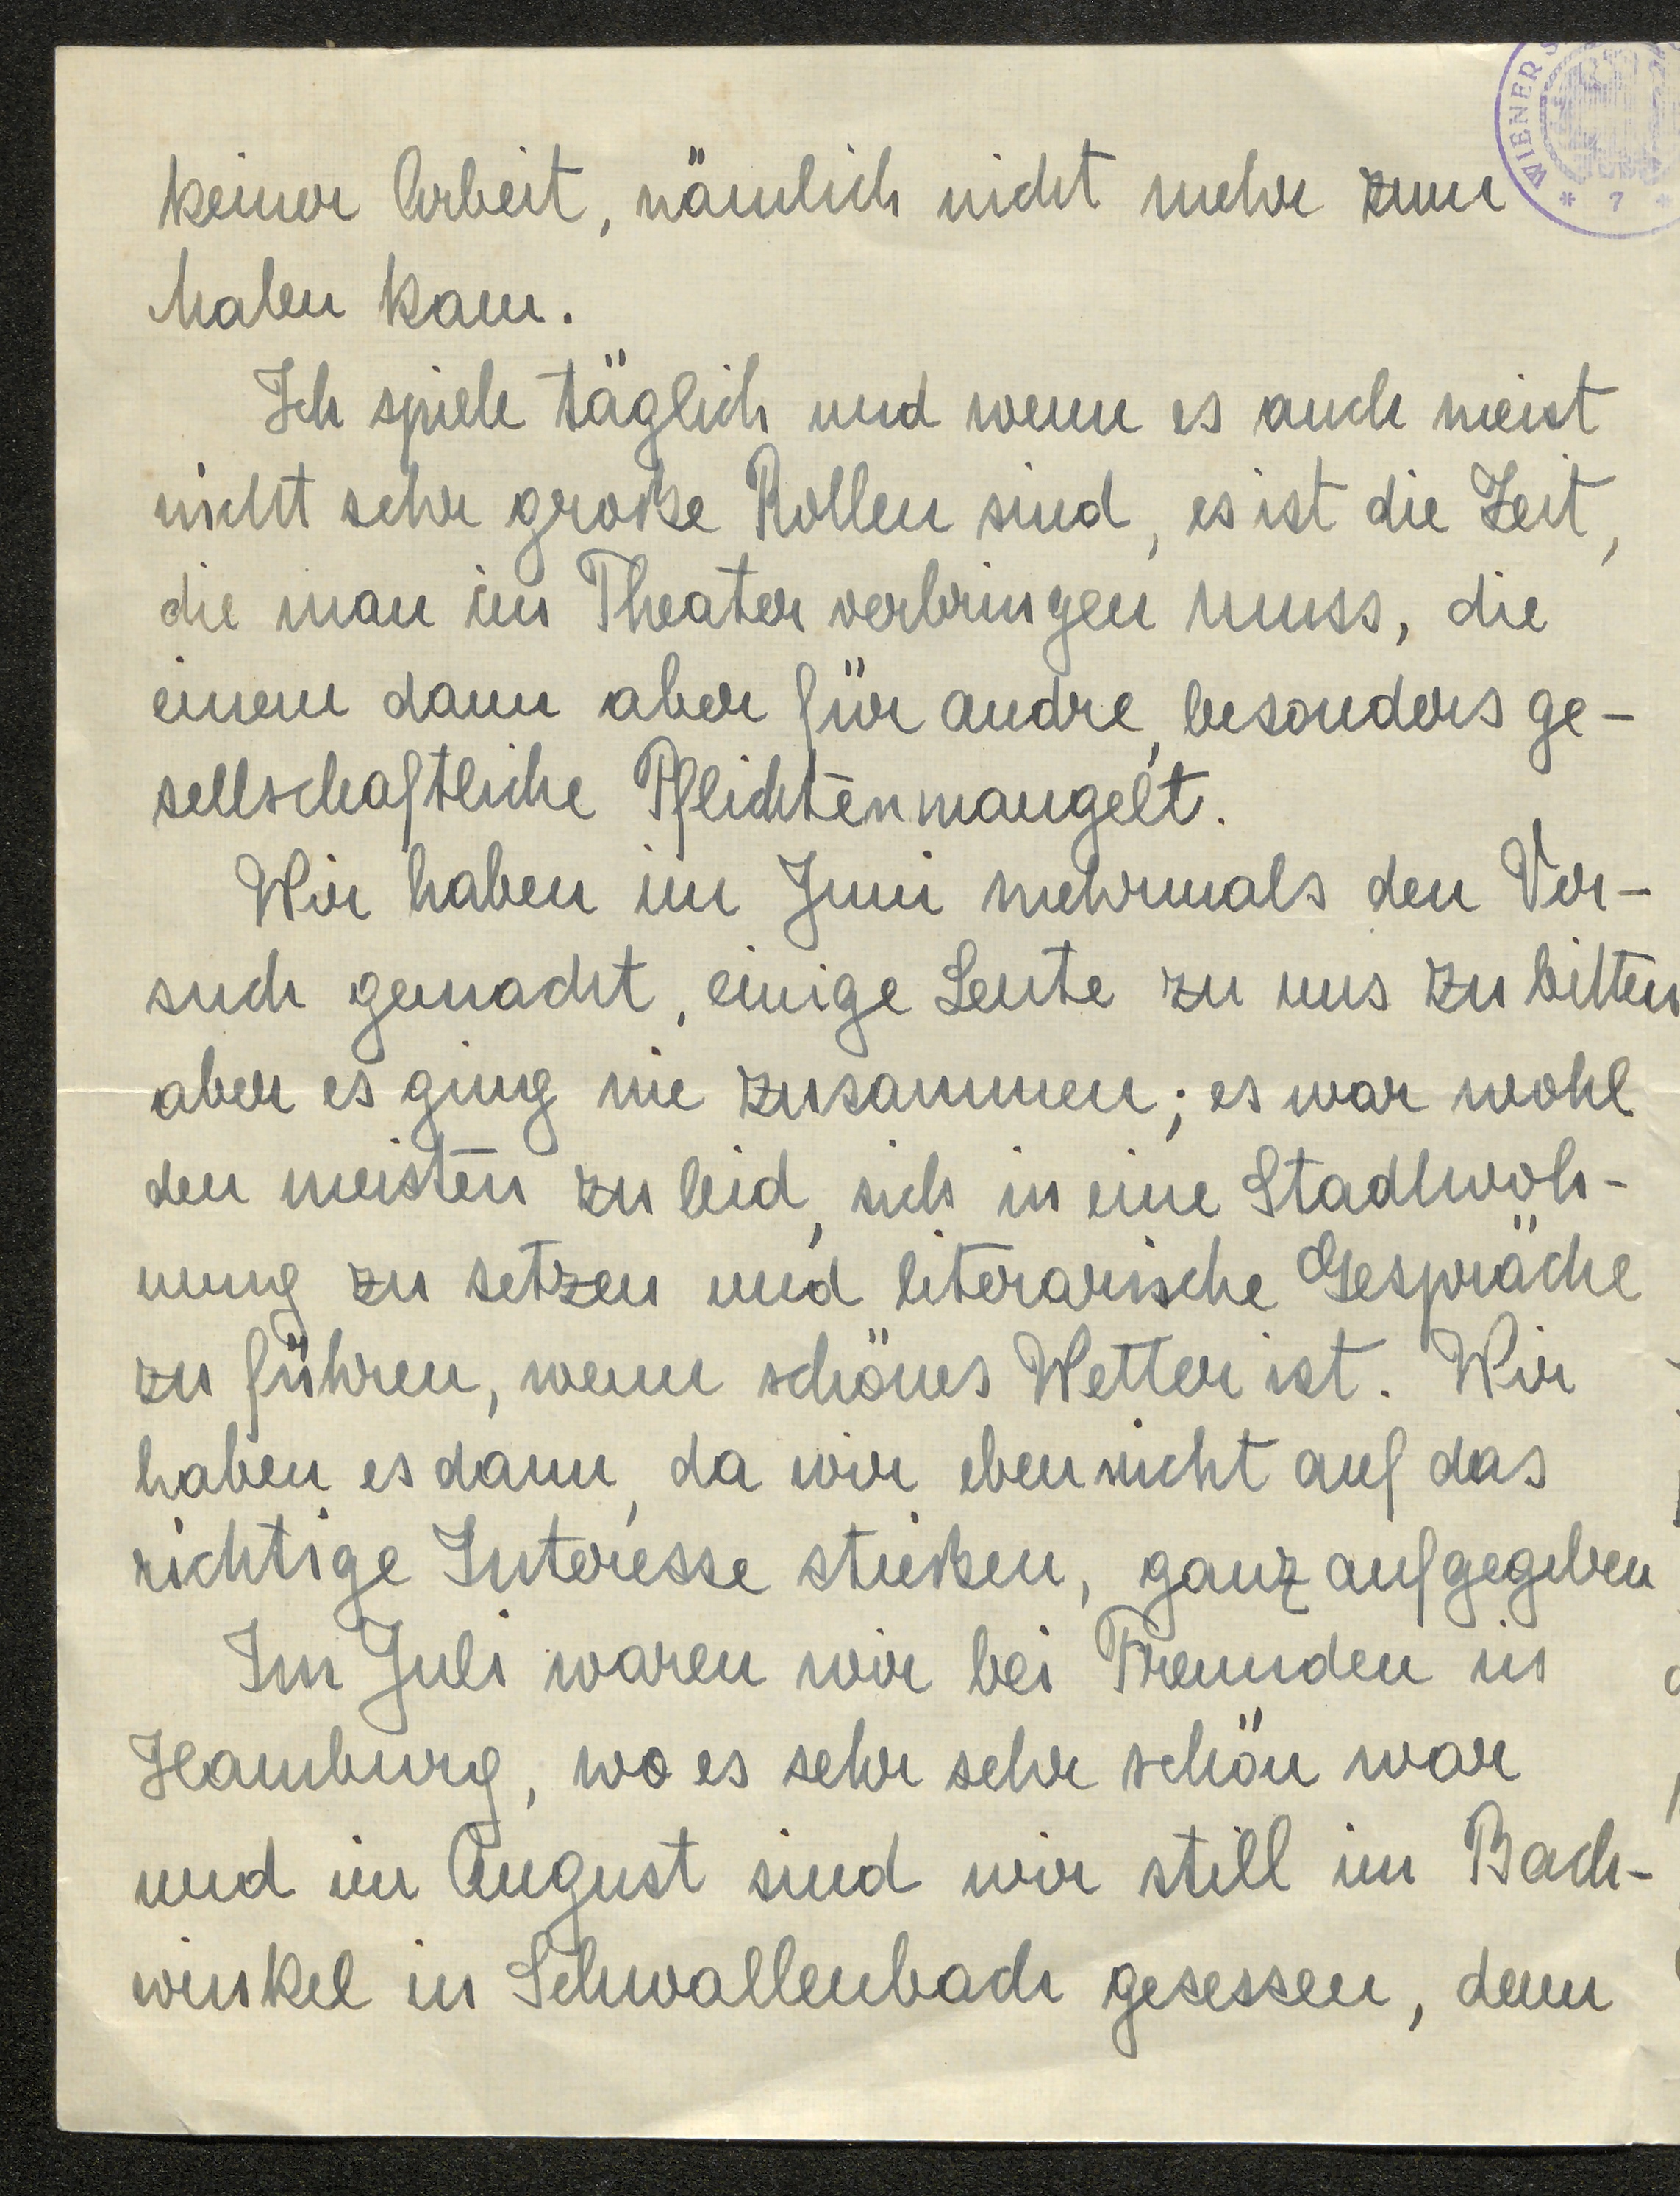 WIENER S
* 7 *
keiner Arbeit, nämlich nicht mehr zum
Malen kam.
Ich spiele täglich und wenn es auch meist
nicht sehr große Rollen sind, es ist die Zeit,
die man im Theater verbringen muss, die
einem dann aber für andre, besonders ge-
sellschaftliche Pflichten mangelt.
Wir haben im Juni mehrmals den Ver-
such gemacht, einige Leute zu uns zu bitten
aber es ging nie zusammen; es war wohl
den meisten zu leid, sich in eine Stadtwoh-
nung zu setzen und literarische Gespräche
zu führen, wenn schönes Wetter ist. Wir
haben es dann, da wir eben nicht auf das
richtige Interesse stießen, ganz aufgegeben
Im Juli waren wir bei Freunden in
Hamburg, wo es sehr sehr schön war
und im August sind wir still im Bach-
winkel in Schwallenbach gesessen, denn